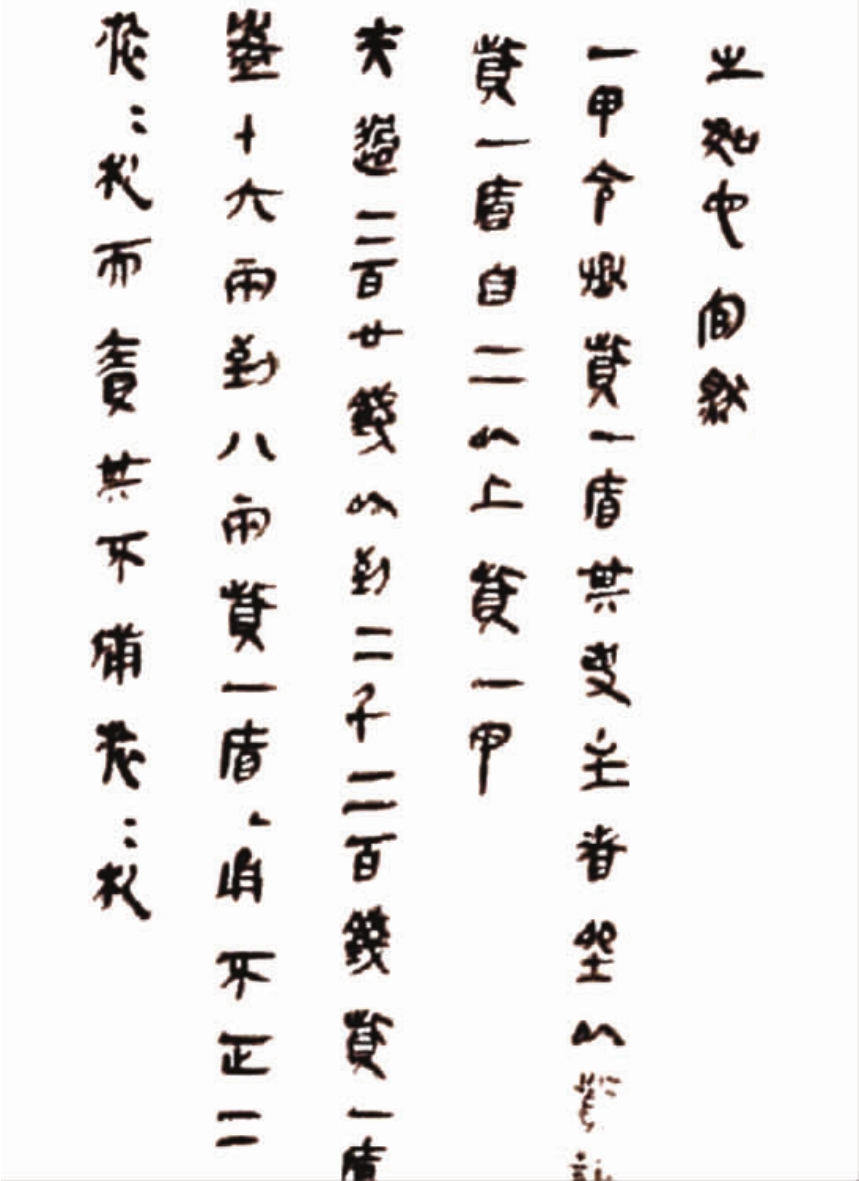 之如
一甲令丞貲一盾其吏主者坐以貲誶
貲一盾自二以上貲一甲
夫過二百廿錢以到二千二百錢貲一盾
盈十六兩到八兩貲一盾∟甬不正二
旅=札而責其不備旅=札